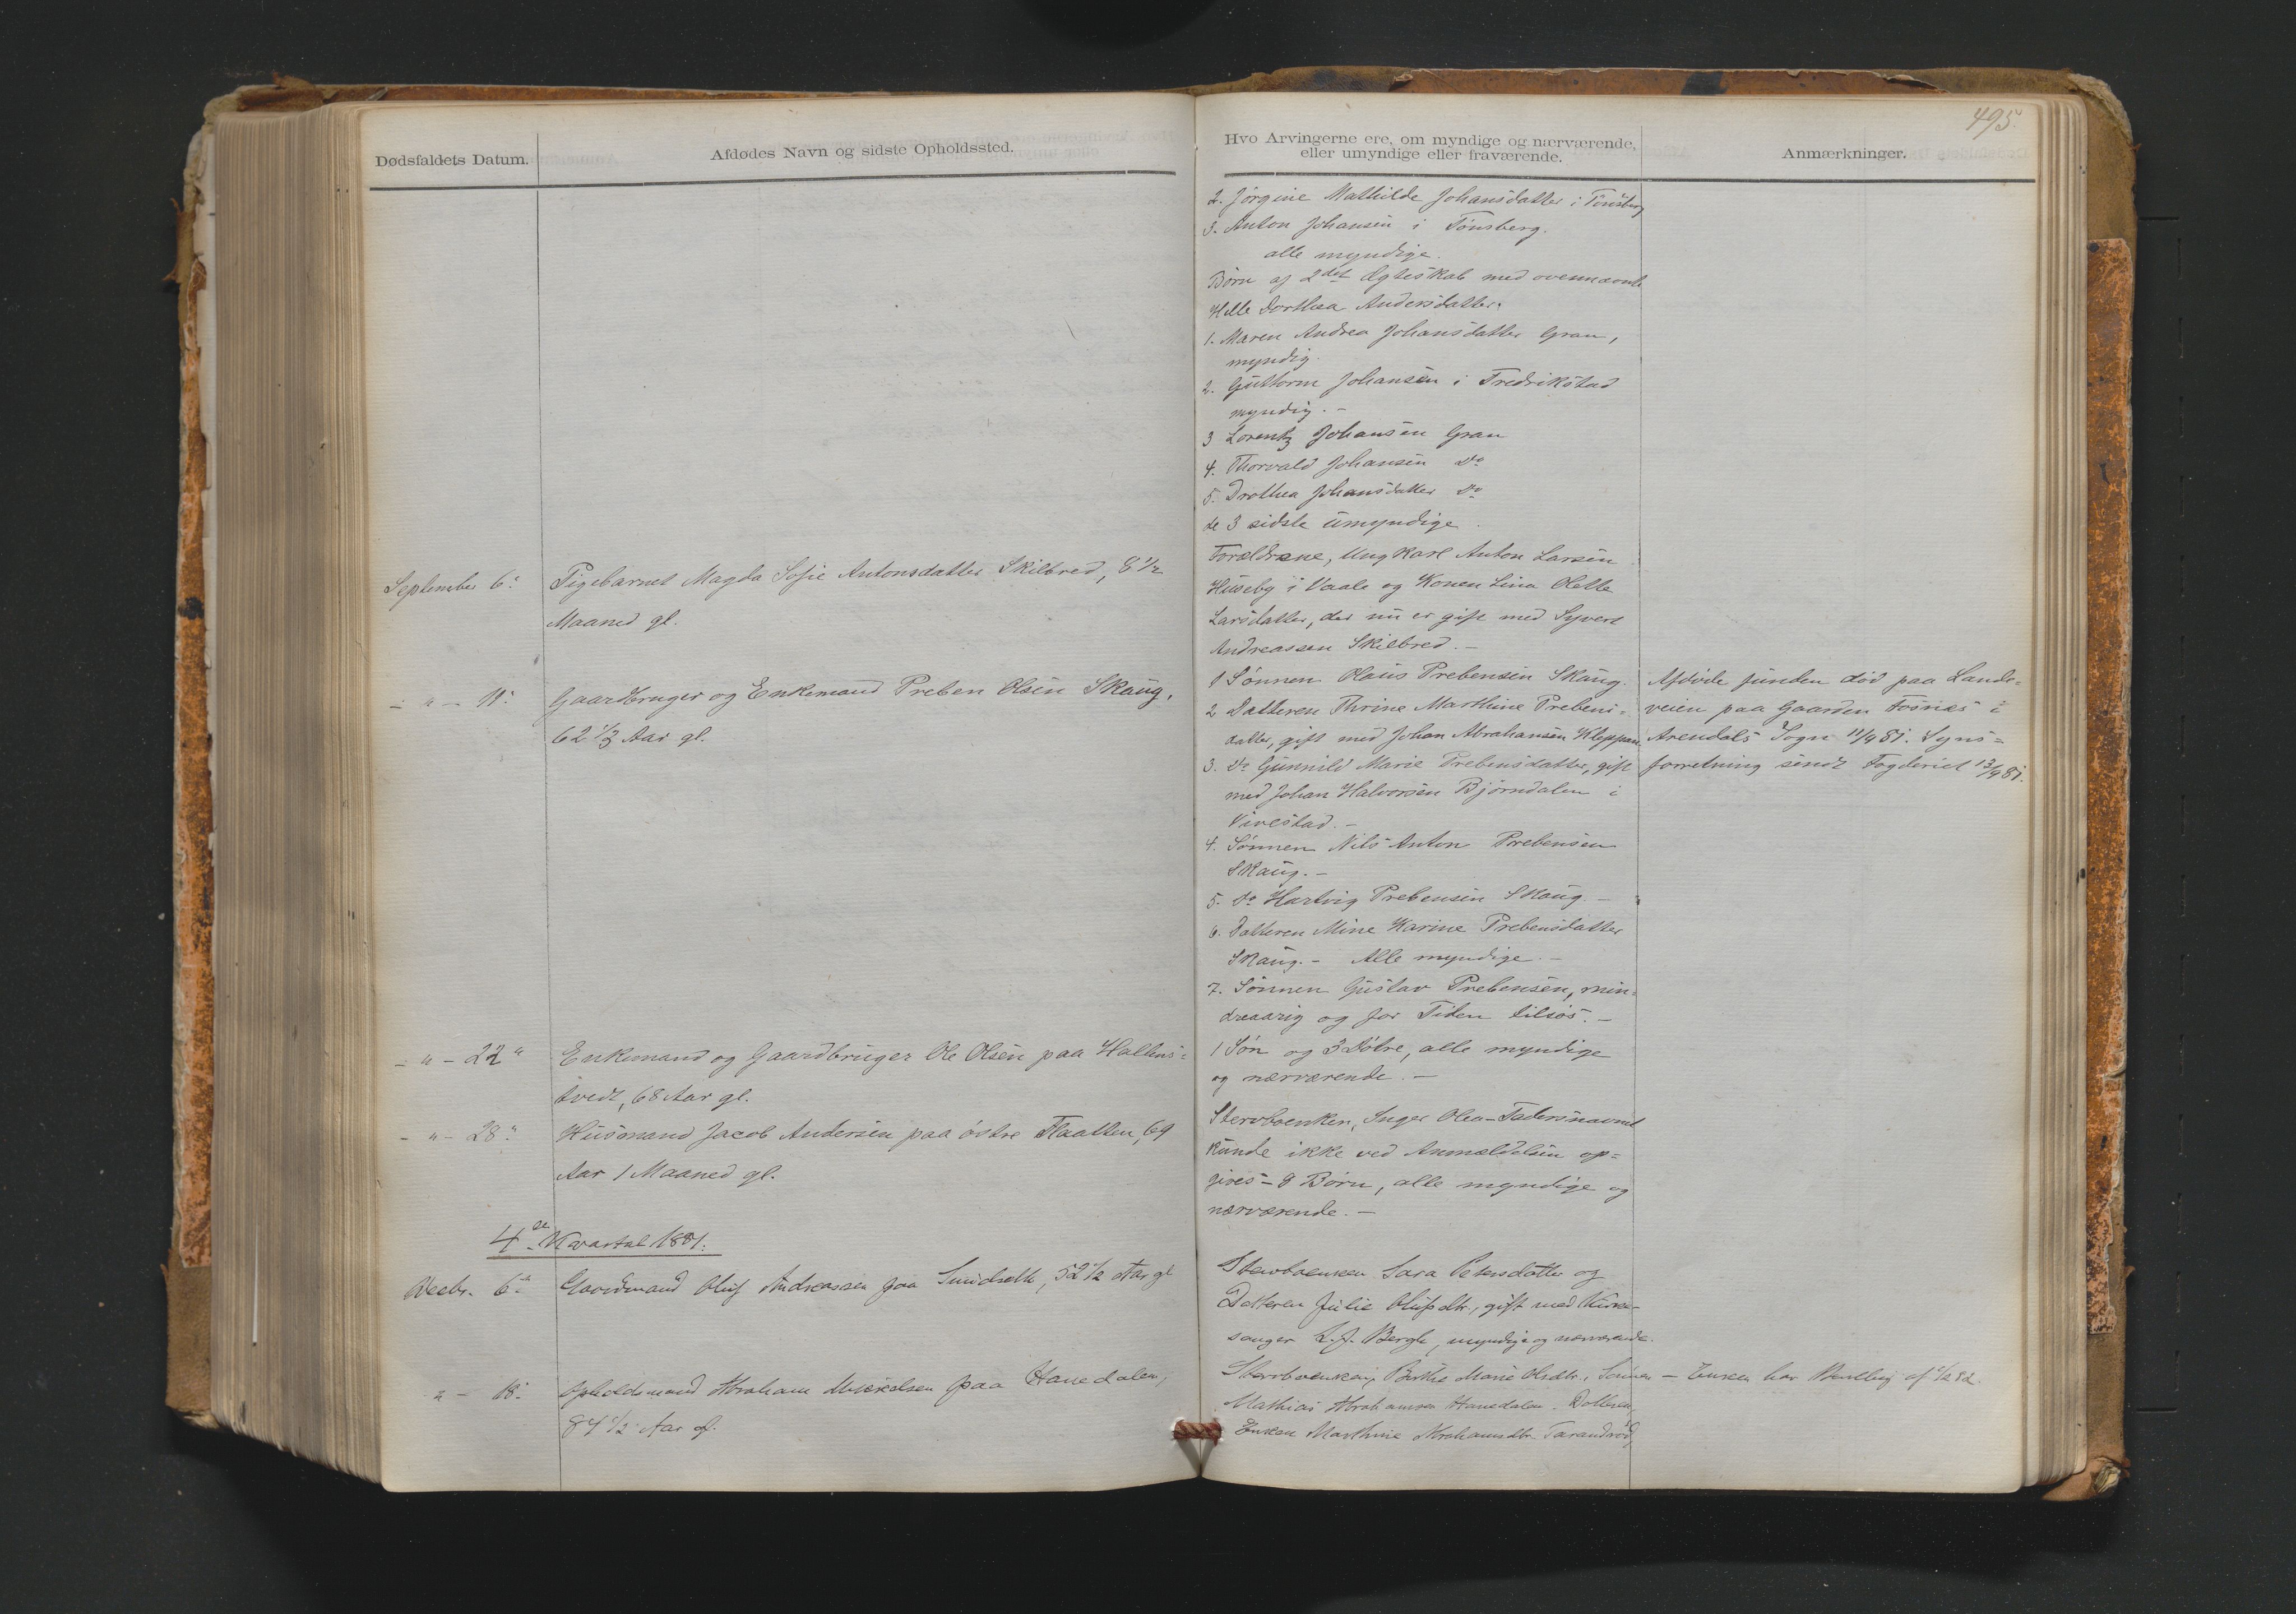 495.
Dødsfaldets Datum.
Afdødes Navn og sidste Opholdssted.
Hvo Arvingerne ere, om myndige og nærværende,
eller umyndige eller fraværende.
Anmærkninger.
2. Jörgine Mathilde Johansdatter i Tönsberg
3. Anton Johansen i Tönsberg.
alle myndige.
Börn af 2det Ægteskab med ovennævnte
Helle Dorthea Andersdatter.
1. Maren Andrea Johansdatter Gran,
myndig.
2. Guttorm Johansen i Fredrikstad
myndig. -
3 Lorentz Johansen Gran
4. Thorvald Johansen do
5. Drothea Johansdatter do
de 3 sidste umyndige.
September 6.
Pigebarnet Magda Sofie Antonsdatter Skilbred, 8 1/2
Maaned gl.
Forældrene, Ungkarl Anton Larsen
Huseby i Vaale og Konen Lina Olette
Larsdatter, der nu er gift med Syvert
Andreassen Skilbred. -
- " - 11.
Gaardbruger og Enkemand Preben Olsen Skaug,
62 1/3 Aar gl.
1 Sönnen Olaus Prebensen Skaug.
2 Datteren Thrine Marthine Prebens=
datter, gift med Johan Abrahamsen Kleppan
3. do Gunnild Marie Prebensdatter, gift
med Johan Halvorsen Björndalen i
Vivestad. -
4. Sönnen Nils Anton Prebensen
Skaug. -
5. do Hartvig Prebensen Skaug. -
6. Datteren Mine Karine Prebensdatter
Skaug. - Alle myndige. -
7. Sönnen Gustav Prebensen, min=
dreaarig og for Tiden tilsös. -
Afdöde funden död paa Lande=
veien paa Gaarden Fosnæs i
Arendals Sogn 11/9 81. Syns=
forretning sendt Fogderiet 13/9 81.
- " - 22 "
Enkemand og Gaardbruger Ole Olsen paa Halthns=
tvedt, 68 Aar gl.
1 Sön og 3 Dötre, alle myndige
og nærværende. -
- " - 28 "
Husmand Jacob Andersen paa östre Flaatten, 69
Aar 1 Maaned gl.
Stervboenken, Inger Olea - Fadersnavnet
kunde ikke ved Anmeldelsen op=
gives - 8 Börn, alle myndige og
nærværende. -
4de Kvartal 1881.
Decbr. 6te
Gaardmand Oluf Andreassen paa Smidsrth, 52 1/2 Aar gl
Stervboenken Sara Petersdatter og
Datteren Julie Olufsdtr., gift med Kirke-
sanger L. J. Bergh, myndige og nærværende.
" - 18.
Opholdsmand Abraham Mikkelsen paa Hanedalen,
84 1/2 Aar gl.
Stervboenken, Berthe Marie Olsdtr., Sönnen
Mathias Abrahamsen Hanedalen. Datteren,
Enken Marthine Abrahamsdtr. Tarandröd,
- Enken har Bevilling af 2/2 82.